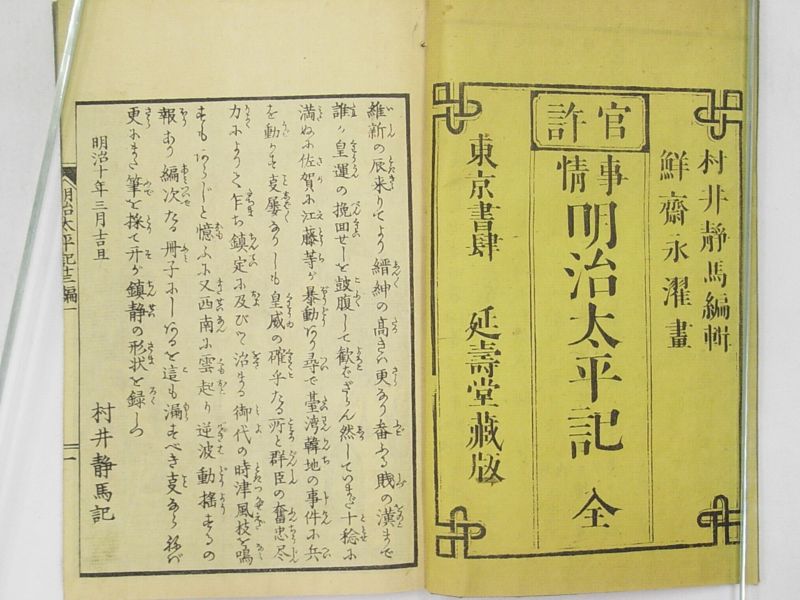 官許
村井靜馬編輯
鮮齋永濯畫
事情明治太平記 全
東京書肆 延壽堂藏版
維新の辰来りてより縉紳の高きハ更あり
誰か皇運の挽回せしを鼓腹して歓ばざらん然していまだ十稔に
満ぬに佐賀に江藤等が暴動あり尋で臺湾韓地の事件に兵
を動かす㕝屡ありしも皇威の確乎たる所と群臣の奮忠尽
力によりて乍ち鎮定に及びて治まる御代の時津風技を鳴
すもあらじと憶ふに又西南に雲起り逆波動揺するの
報あり編次たる冊子にしあるを這も漏すべき㕝なら
更にまた筆を採て鎮静の形状を録しつ
明治十年三月吉旦
村井静馬記
明治太平記十二編 一